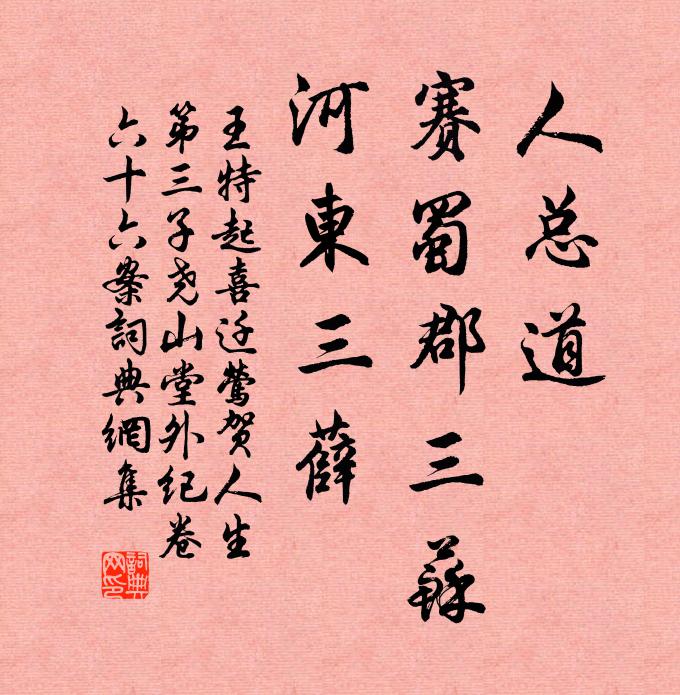 人总道
赛蜀郡三蘇
河東三薛
王特起喜迁莺贺人生
第三子尧山堂外纪卷
六十六案詞典網集
詞典網印